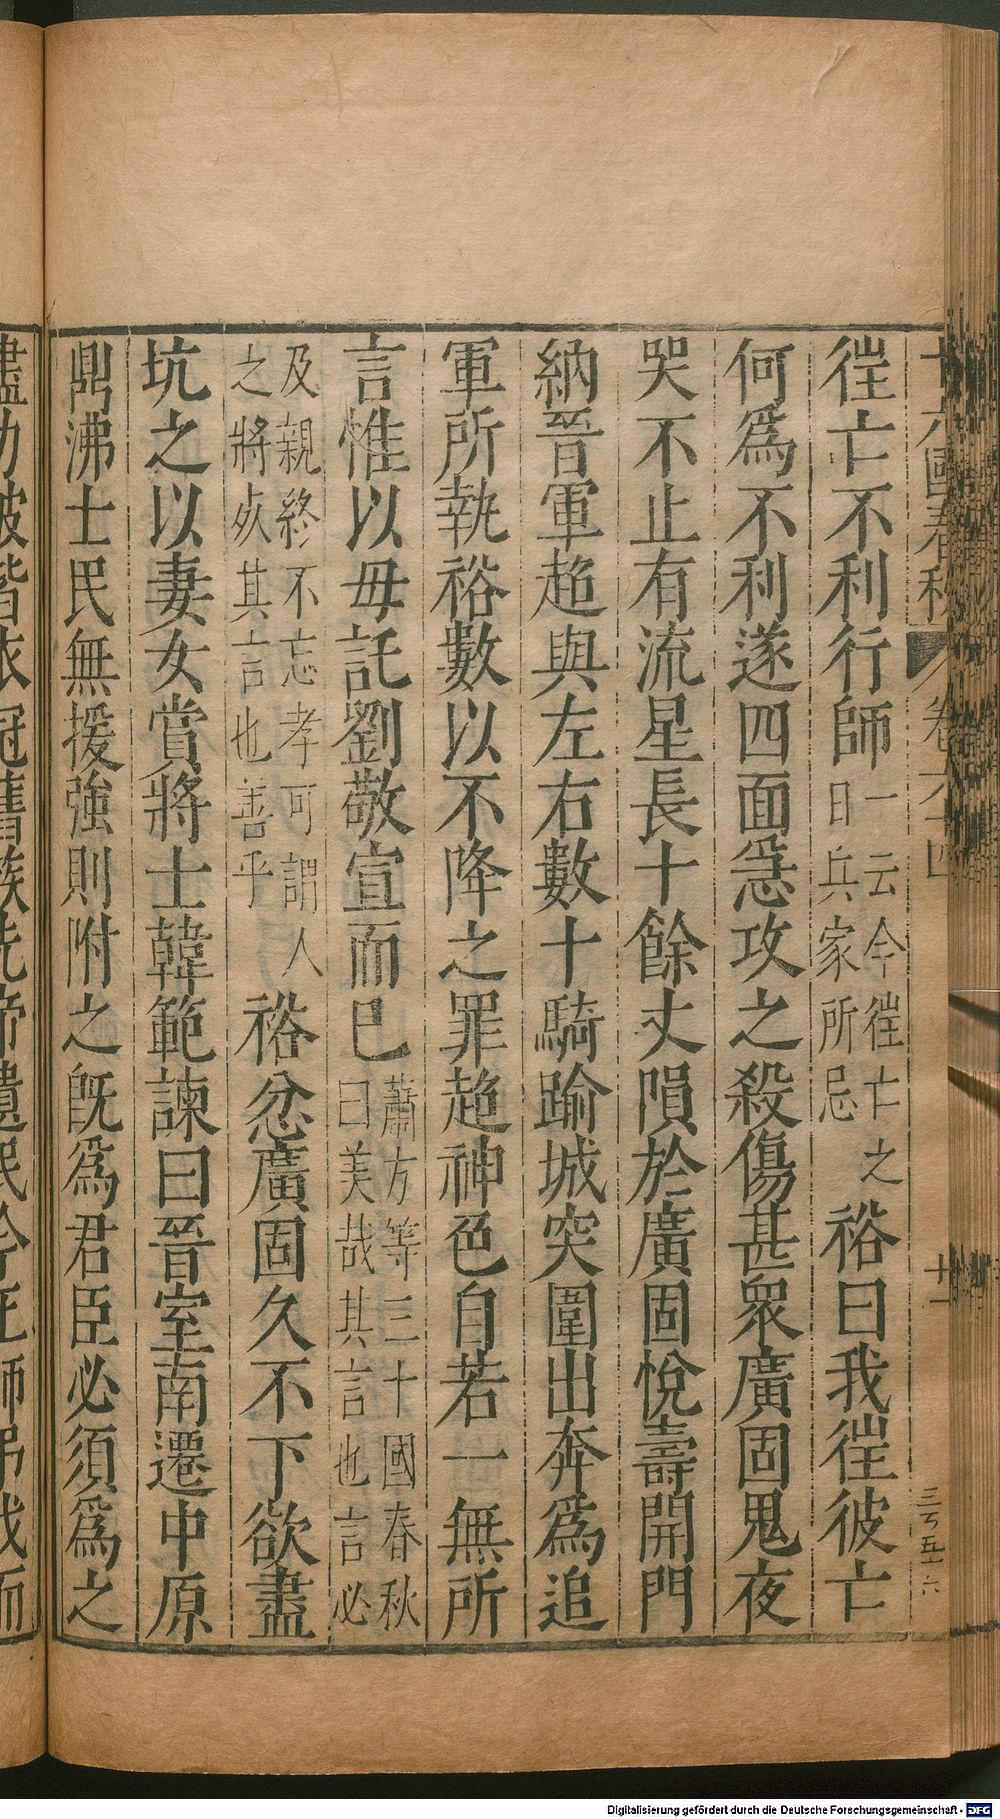 十六國春秋 卷六十四 十一
徃亡不利行師一云今徃亡之日兵家所忌裕曰我徃彼亡
何爲不利遂四面急攻之殺傷甚衆廣固鬼夜
哭不止有流星長十餘丈隕於廣固悅壽開門
納晉軍超與左右數十騎踰城突圍出奔爲追
軍所執裕數以不降之罪超神色自若一無所
言惟以母託劉敬宣而巳蕭方等三十國春秋曰美哉其言也言必
及親終不忘孝可謂人之將死其言也善乎裕忿廣固久不下欲盡
坑之以妻女賞將士韓範諫曰晉室南遷中原
鼎沸士民無援強則附之旣爲君臣必須爲之
Digitalisierung gefördert durch die Deutsche Forschungsgemeinschaft - DFG